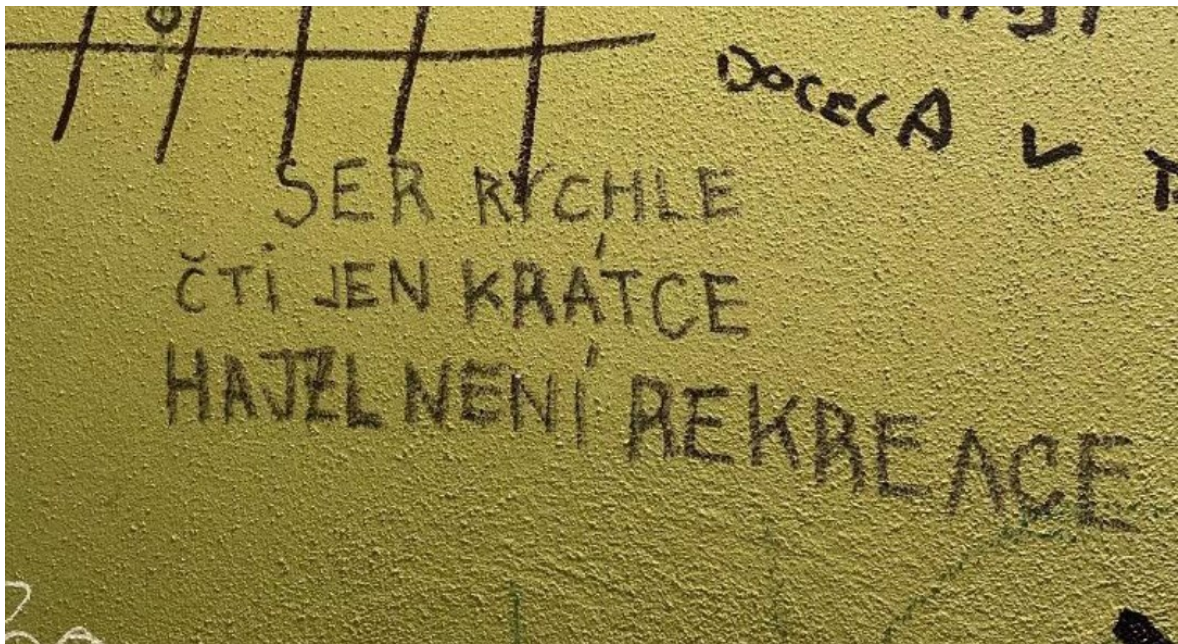 DOCELA V
SER RYCHLE
ČTI JEN KRÁTCE
HAJZL NENÍ REKREACE